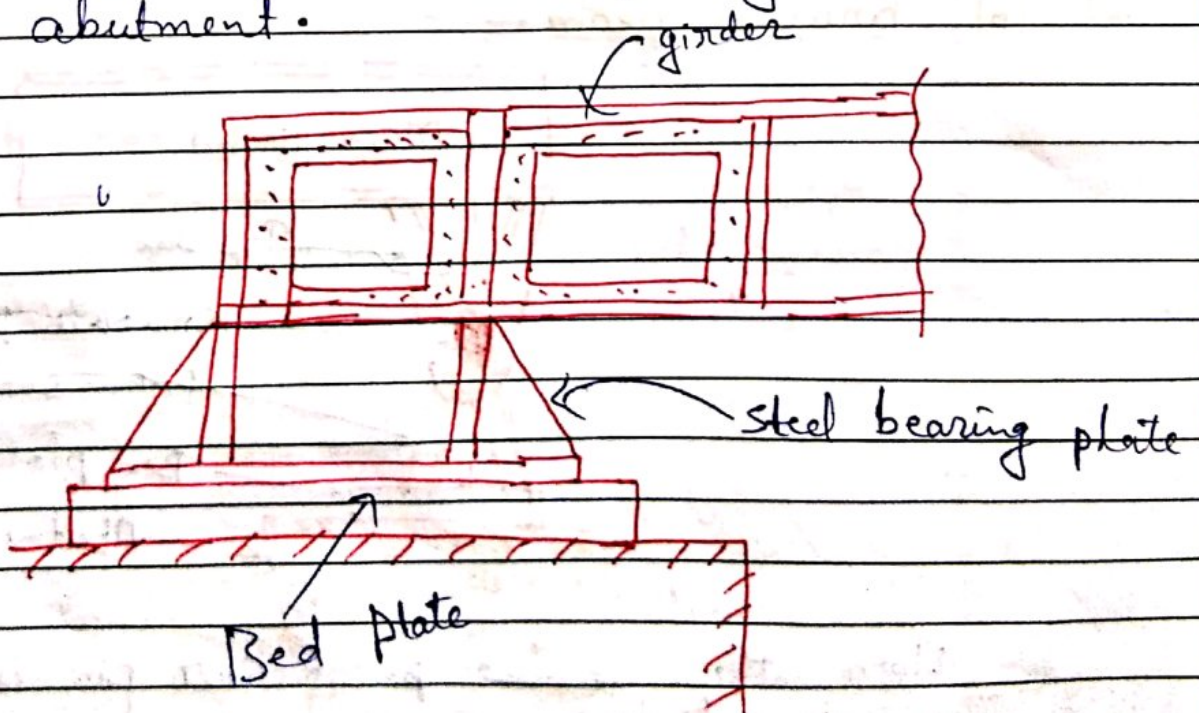 abutment.
girder
steel bearing plate
Bed plate